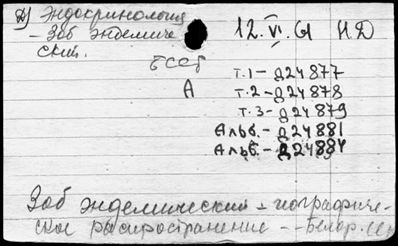 Д) Эндокринология
- Зоб эндемиче
ский.
12. VI. 61 НД
БССР
А
т.1 - Д24877
т.2 - Д24878
т.3 - Д24879
Альб. - Д24881
Альб. - Д24884
Зоб эндемический - географиче-
ское распространение - - Белор.